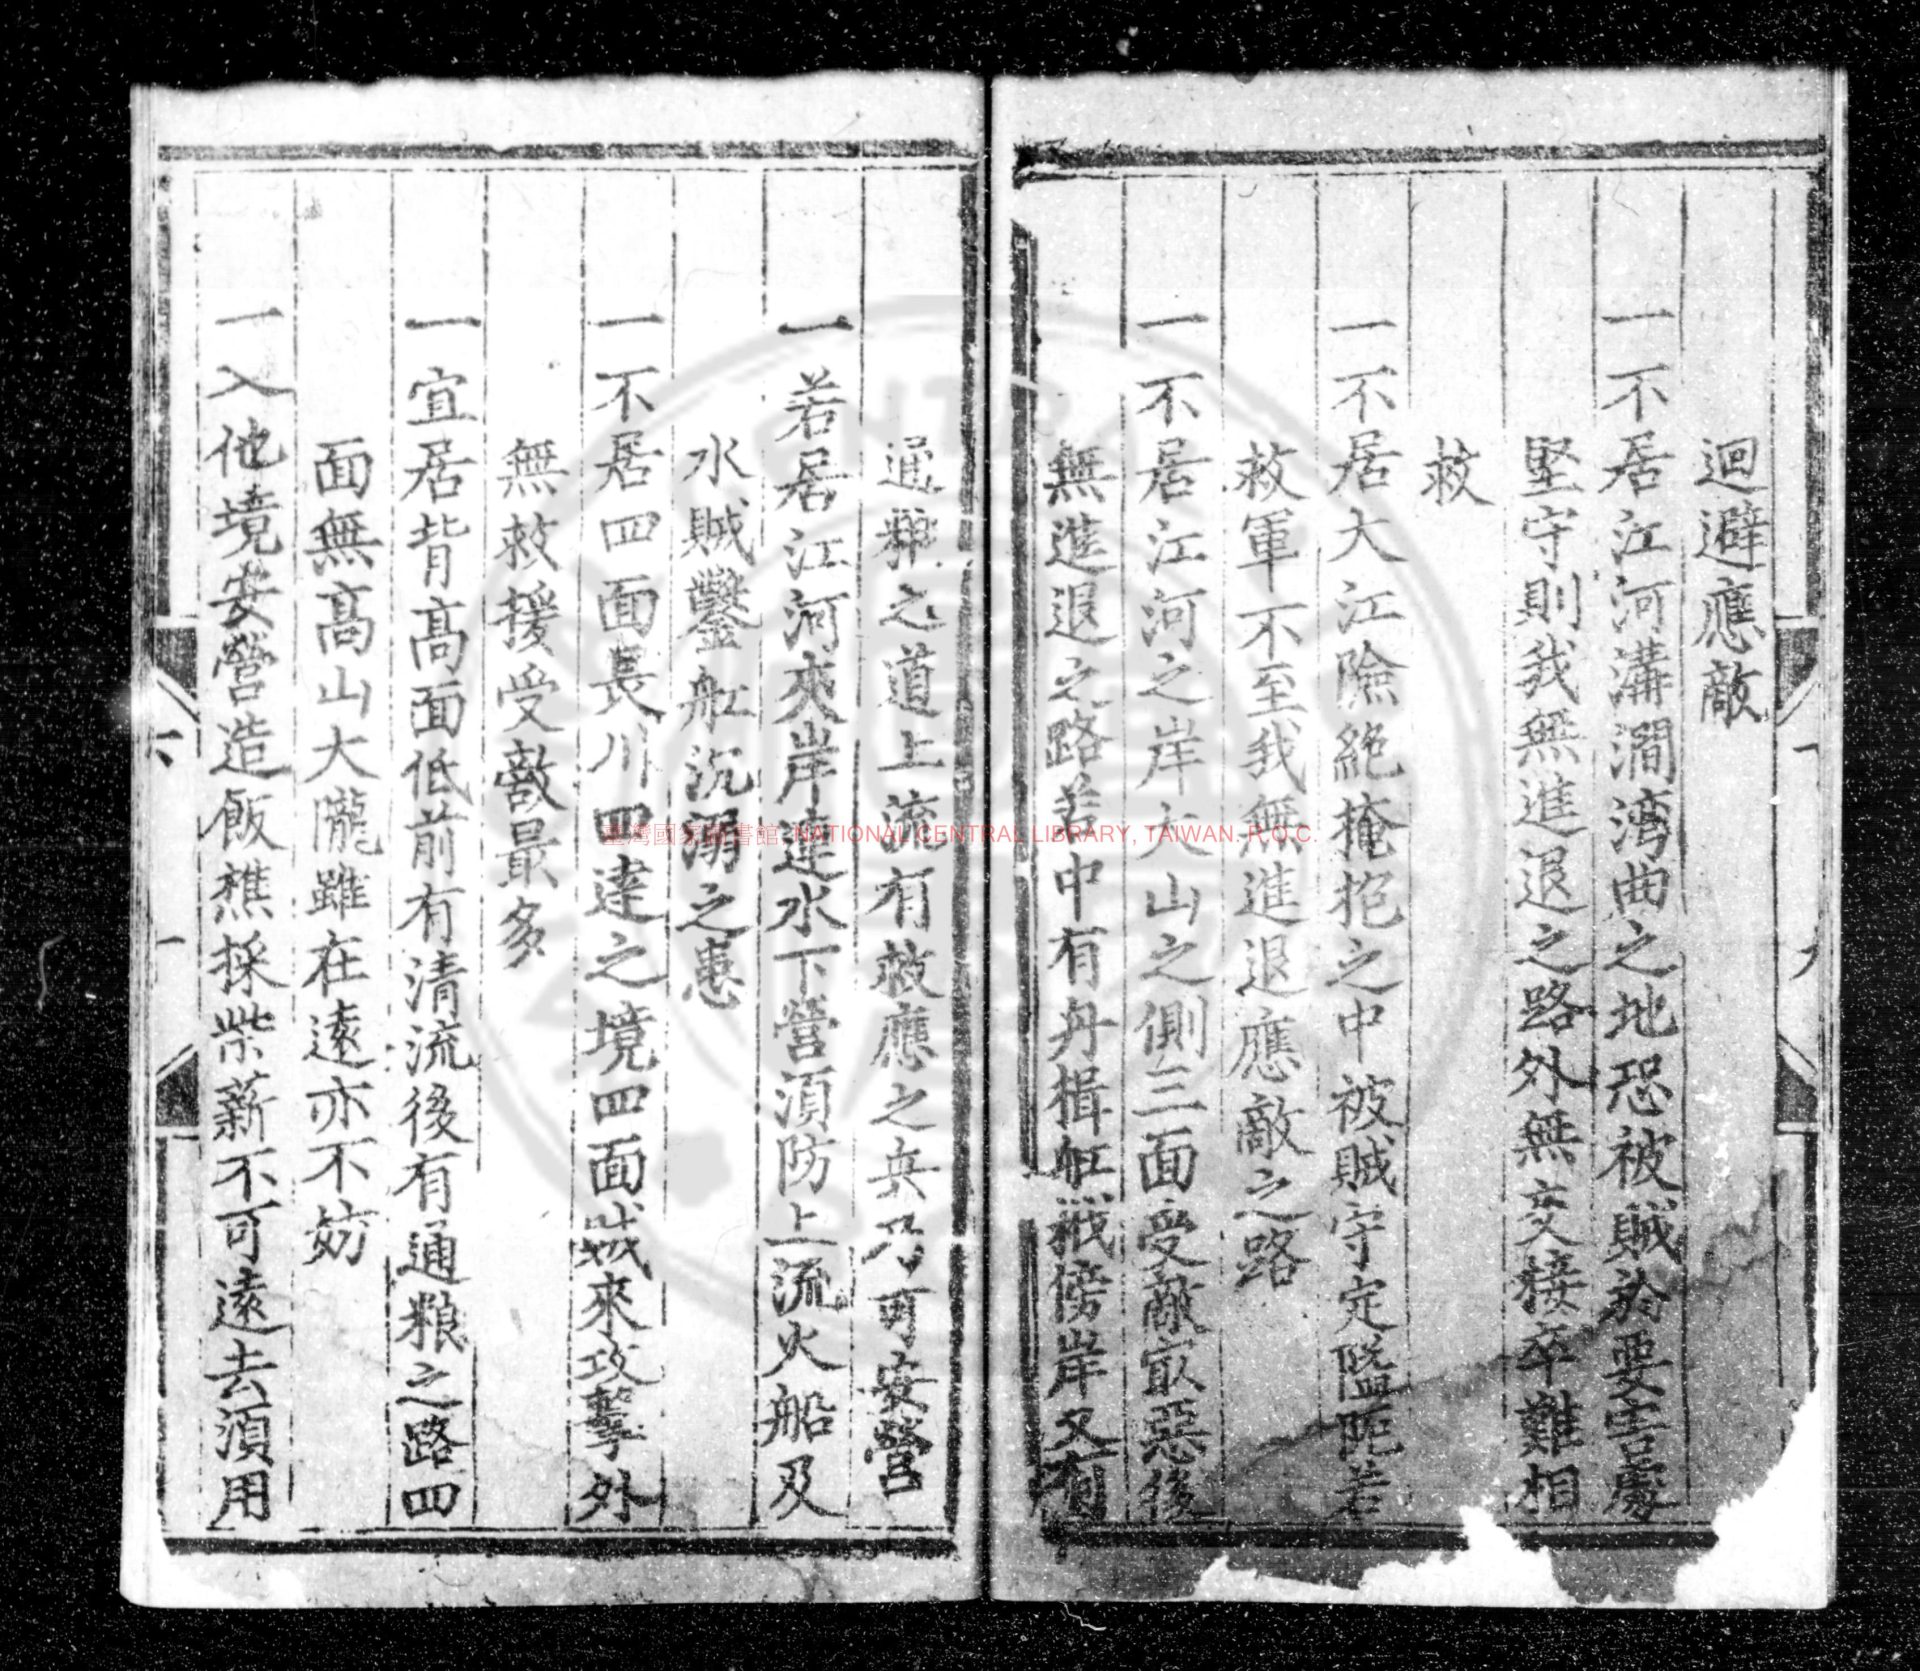 迴避應敵
一不居江河溝澗湾曲之地恐被賊於要害處
堅守則我無進退之路外無交接卒難相
救
一不居大江險絕掩抱之中被賊守定隘阨若
救軍不至我無進退應敵之路
一不居江河之岸大山之側三面受敵㝡惡後
無進退之路若中有舟楫舡戰傍岸又有
通粮之道上流有救應之兵乃可安營
一若居江河夾岸連水下營須防上流火船及
水賊鑿舡沉溺之患
一不居四面長川四達之境四面賊來攻擊外
無救援受敵最多
一宜居背高面低前有清流後有通粮之路四
面無高山大隴雖在遠亦不妨
一入他境安營造飯樵採柴薪不可遠去須用
六
一
臺灣國家圖書館, NATIONAL CENTRAL LIBRARY, TAIWAN. R.O.C.